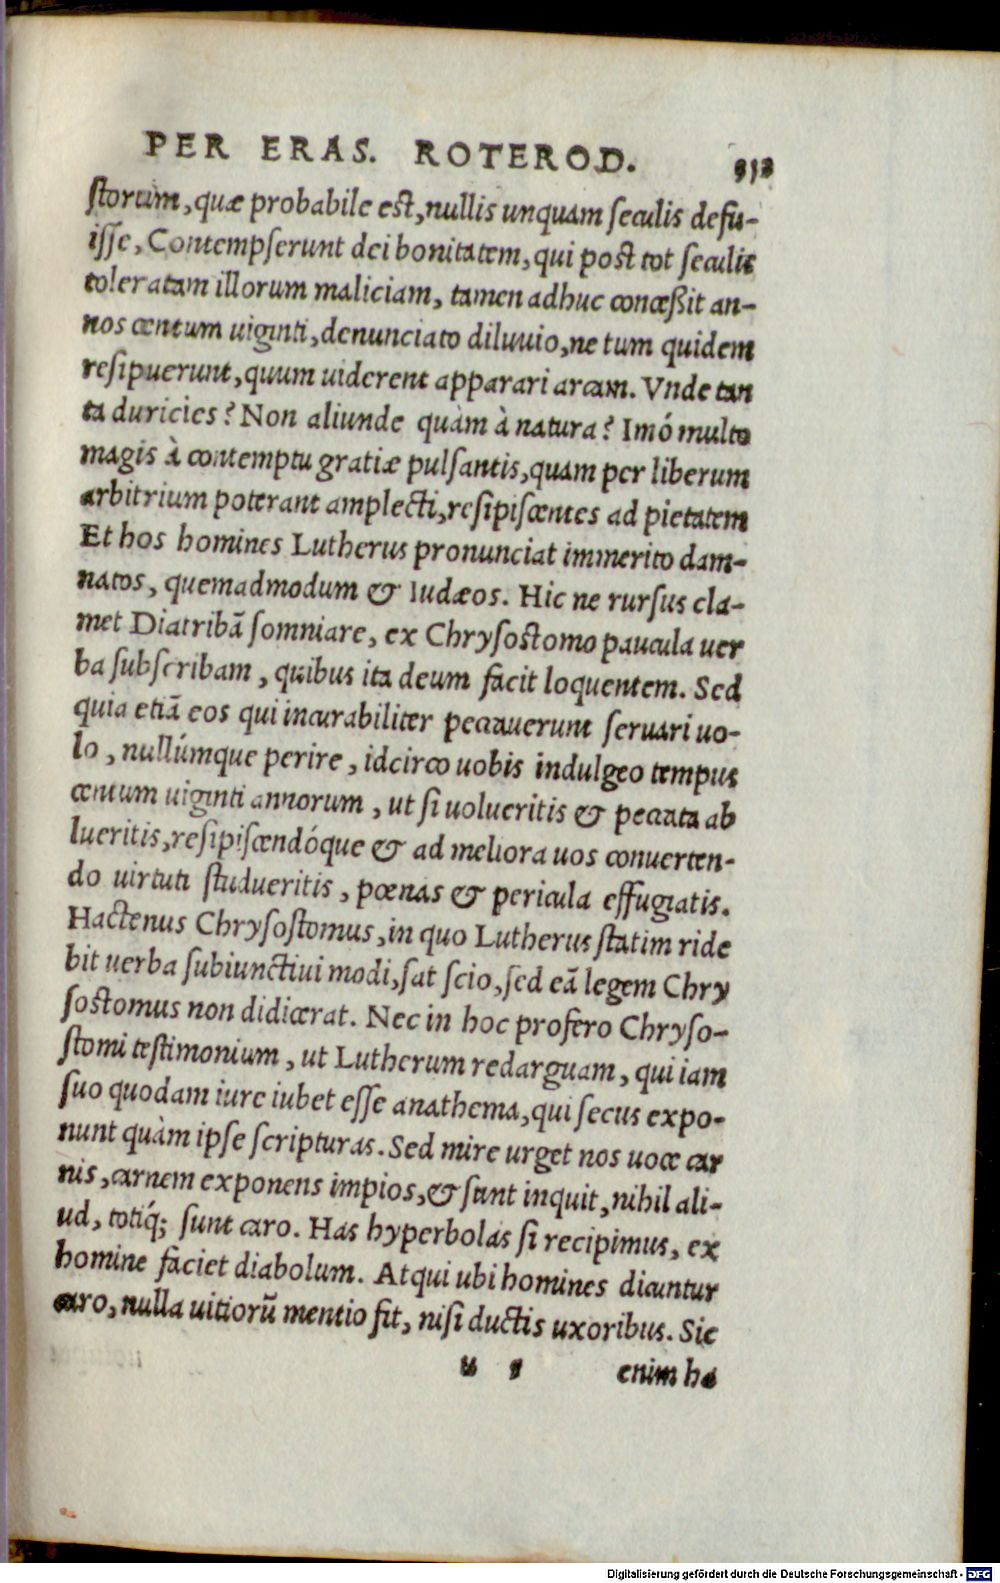 PER ERAS. ROTEROD.
storum, quæ probabile est, nullis unquam seculis defu-
isse, Contempserunt dei bonitatem, qui post tot seculis
toleratam illorum maliciam, tamen adhuc concessit an-
nos centum uiginti, denunciato diluuio, ne tum quidem
resipuerunt, quum uiderent apparari arcam. Vnde tan
ta duricies? Non aliunde quàm à natura? Imó multo
magis à contemptu gratiæ pulsantis, quam per liberum
arbitrium poterant amplecti, resipiscentes ad pietatem
Et hos homines Lutherus pronunciat immerito dam-
natos, quemadmodum & Iudæos. Hic ne rursus cla-
met Diatribã somniare, ex Chrysostomo paucula uer
ba subscribam, quibus ita deum facit loquentem. Sed
quia etiã eos qui incurabiliter peccauerunt seruari uo-
lo, nullúmque perire, idcirco uobis indulgeo tempus
centum uiginti annorum, ut si uolueritis & peccata ab
lueritis, resipiscendóque & ad meliora uos conuerten-
do uirtuti studueritis, pœnas & pericula effugiatis.
Hactenus Chrysostomus, in quo Lutherus statim ride
bit uerba subiunctiui modi, sat scio, sed eã legem Chry
sostomus non didicerat. Nec in hoc profero Chryso-
stomi testimonium, ut Lutherum redarguam, qui iam
suo quodam iure iubet esse anathema, qui secus expo-
nunt quàm ipse scripturas. Sed mire urget nos uoce car
nis, carnem exponens impios, & sunt inquit, nihil ali-
ud, totiq́; sunt caro. Has hyperbolas si recipimus, ex
homine faciet diabolum. Atqui ubi homines dicuntur
caro, nulla uitiorũ mentio fit, nisi ductis uxoribus. Sic
u
enim ha
Digitalisierung gefördert durch die Deutsche Forschungsgemeinschaft - DFG